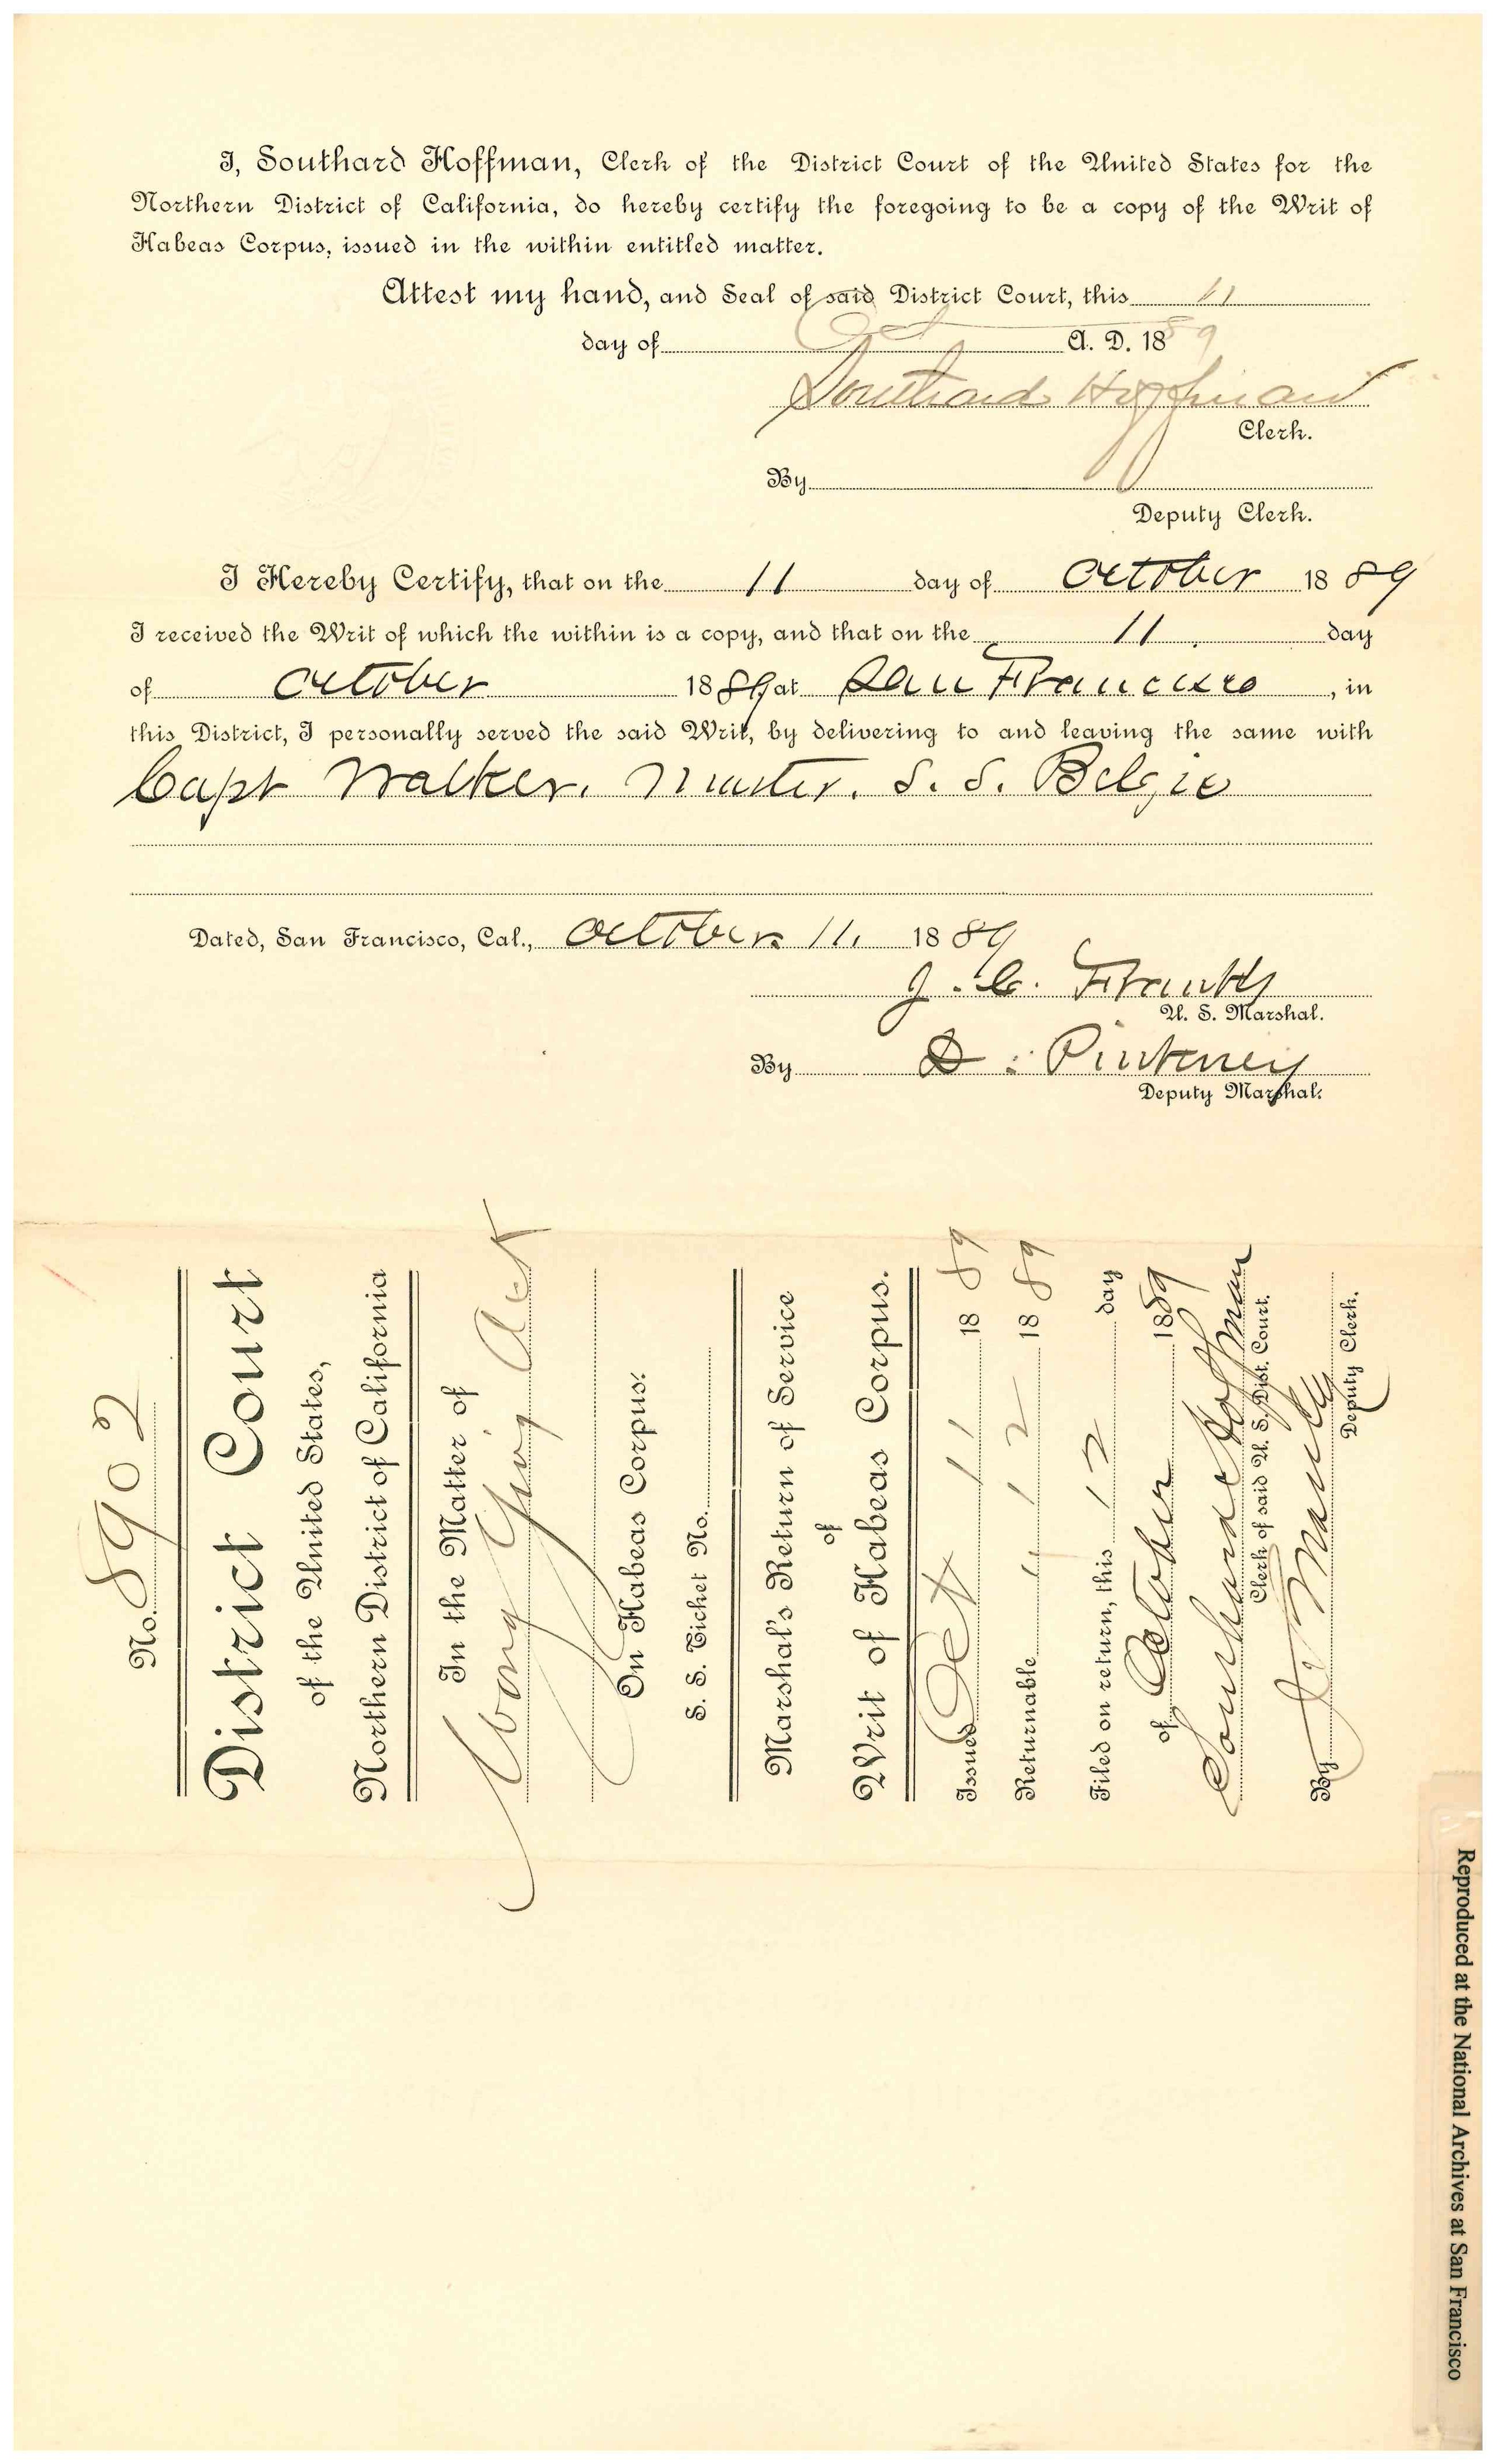 I, Southard Hoffman, Clerk of the District Court of the United States for the
Northern District of California, do hereby certify the foregoing to be a copy of the Writ of
Habeas Corpus, issued in the within entitled matter.
Attest my hand, and Seal of said District Court, this 11
day of Oct A. D. 1889
Southard Hoffman
Clerk.
By
Deputy Clerk.
I Hereby Certify, that on the 11 day of October 1889
I received the Writ of which the within is a copy, and that on the 11 day
of October 1889 at San Francisco, in
this District, I personally served the said Writ, by delivering to and leaving the same with
Capt Walker. Master. S. S. Belgic
Dated, San Francisco, Cal., October 11. 1889
J. C. Franks
U. S. Marshal.
By D. Pinkney
Deputy Marshal.
No. 8902
District Court
of the United States,
Northern District of California
In the Matter of
Wong Ying
On Habeas Corpus.
S. S. Ticket No.
Marshal's Return of Service
of
Writ of Habeas Corpus.
Issued Oct 11 1889
Returnable " 12 1889
Filed on return, this 12 day
of October 1889
Southard Hoffman
Clerk of said U. S. Dist. Court.
By
Deputy Clerk.
Reproduced at the National Archives at San Francisco